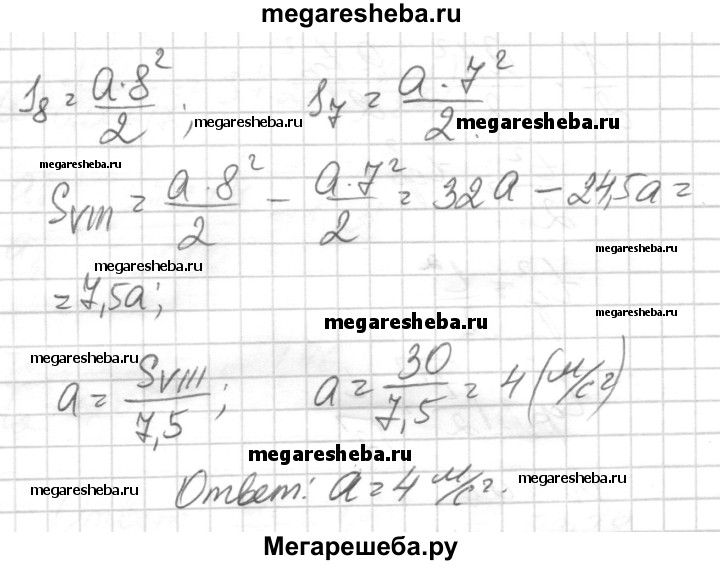 megaresheba.ru
S₈ = a·8²/2 ; S₇ = a·7²/2
megaresheba.ru megaresheba.ru
megaresheba.ru
Sᵥᵢᵢᵢ = a·8²/2 − a·7²/2 = 32a − 24,5a =
megaresheba.ru
megaresheba.ru
= 7,5a;
megaresheba.ru
megaresheba.ru
a = Sᵥᵢᵢᵢ/7,5 ; a = 30/7,5 = 4 (м/с²)
megaresheba.ru
megaresheba.ru
Ответ: a = 4 м/с².
megaresheba.ru
Мегарешеба.ру